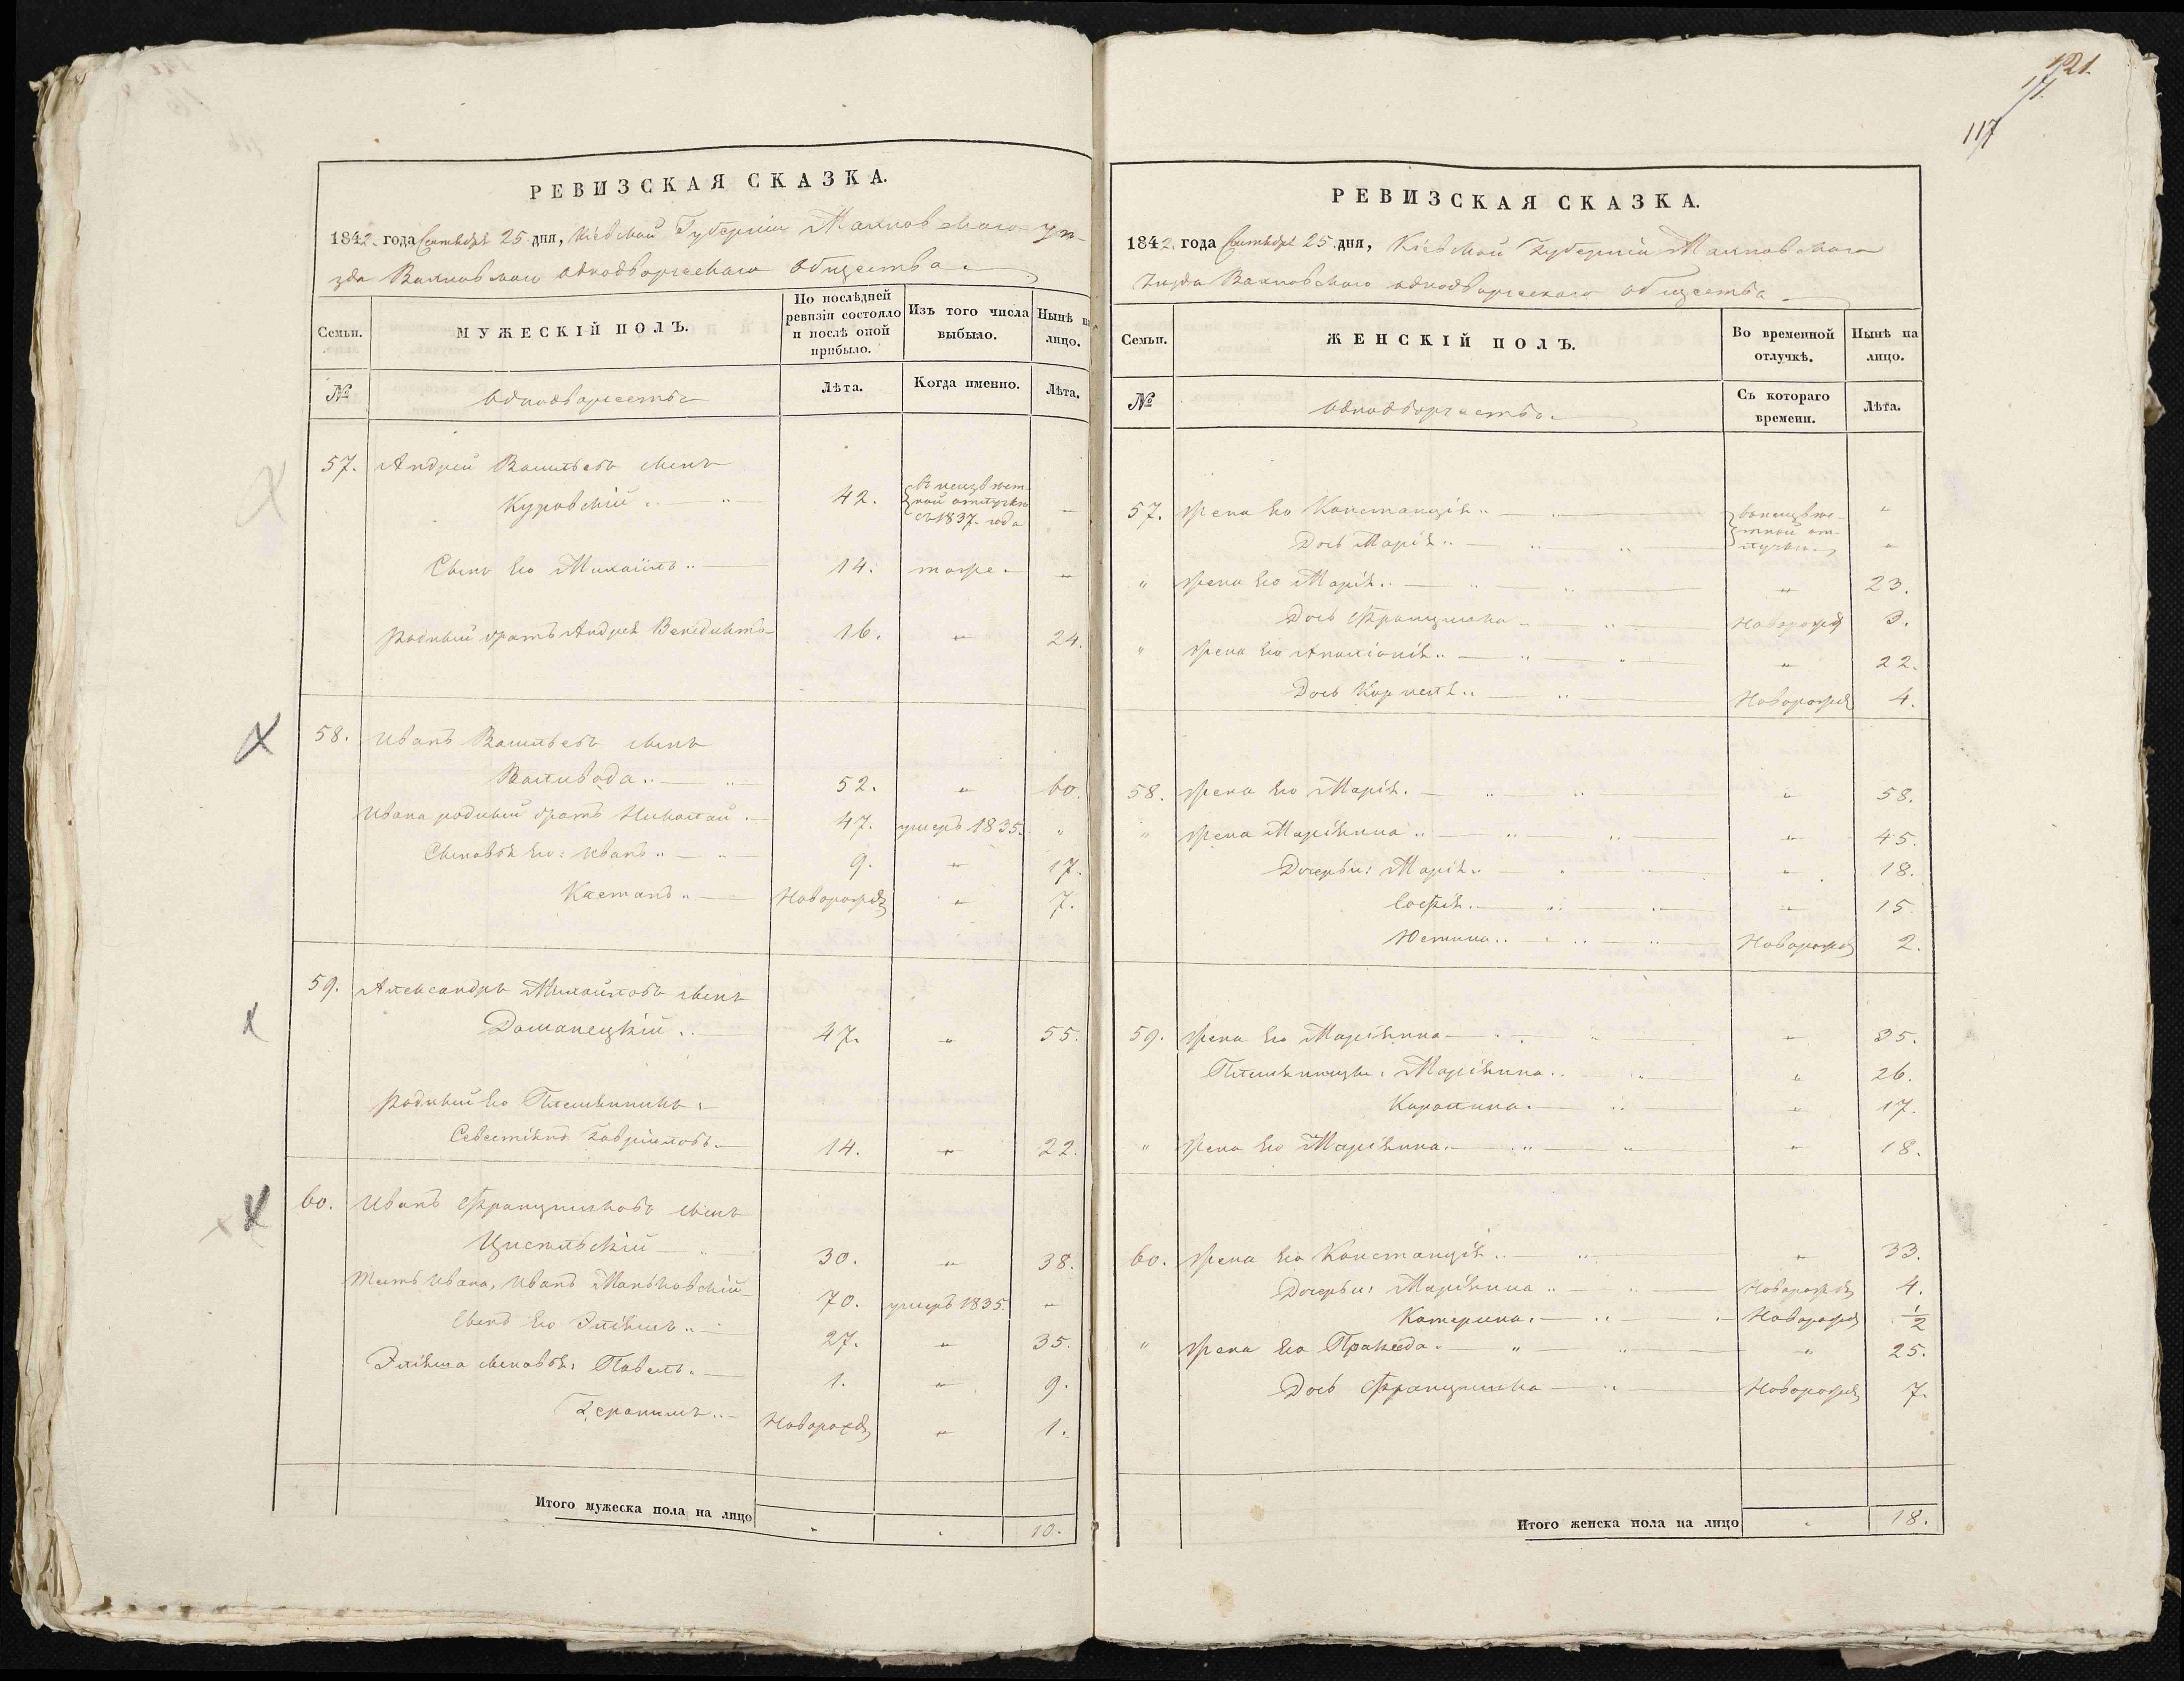 РЕВИЗСКАЯ СКАЗКА.
1842. года Сентября 25 дня, Кіевской Губерніи Махновскаго уѣ-
зда Вахновскаго однодворческаго общества
Семьи. МУЖЕСКІЙ ПОЛЪ. По послѣдней ревизіи состояло и послѣ оной прибыло. Изъ того числа выбыло. Нынѣ на лицо.
№ Однодворчества Лѣта. Когда именно. Лѣта.
57. Андрей Васильевъ сынъ
Куровскій 42. въ неизвѣст-
ной отлучкѣ
съ 1837. года
Сынъ его Михаилъ 14. тоже
родный братъ Андрея Венедиктъ 16. " 24.
58. Иванъ Васильевъ сынъ
Валивода 52. " 60.
Ивана родный братъ Николай 47. умеръ 1835. "
Сыновья его: Иванъ 9. " 17.
Каетанъ Новорожд 7.
59. Александръ Михайловъ сынъ
Доманецкій 47. " 55.
родный его Племянникъ:
Севестіянъ Гавріиловъ 14. " 22.
60. Иванъ Францишковъ сынъ
30. " 38.
Тесть Ивана, Иванъ Маньковскій 70. умеръ 1835. "
Сынъ его Эліяшъ 27. " 35.
Эліяша сыновья: Павелъ 1. " 9.
Новорожд " 1.
Итого мужеска пола на лицо 10.
121.
17.
117
РЕВИЗСКАЯ СКАЗКА.
1842. года Сентября 25. дня, Кіевской Губерніи Махновскаго
уѣзда Вахновскаго однодворческаго общества
Семьи. ЖЕНСКІЙ ПОЛЪ. Во временной отлучкѣ. Нынѣ на лицо.
№ Однодворчества Съ котораго времени. Лѣта.
57. Жена его Констанція въ неизвѣ-
стной от-
лучкѣ "
Дочь Марія "
" Жена его Марія " 23.
Дочь Францишка Новорожд 3.
" Жена его Аполіонія " 22.
Дочь Новорожд 4.
58. Жена его Марія " 58.
" Жена Маріянна " 45.
Дочерьи: Марія " 18.
Софія " 15.
Юстина Новорожд 2.
59. Жена его Маріянна " 35.
Племянницы: Маріянна " 26.
Каролина " 17.
" Жена его Маріянна " 18.
60. Жена его Констанція " 33.
Дочерьи: Маріянна Новорожд 4.
Катерина Новорожд 1/2
" Жена его Пракседа " 25.
Дочь Францишка Новорожд 7.
Итого женска пола на лицо 18.